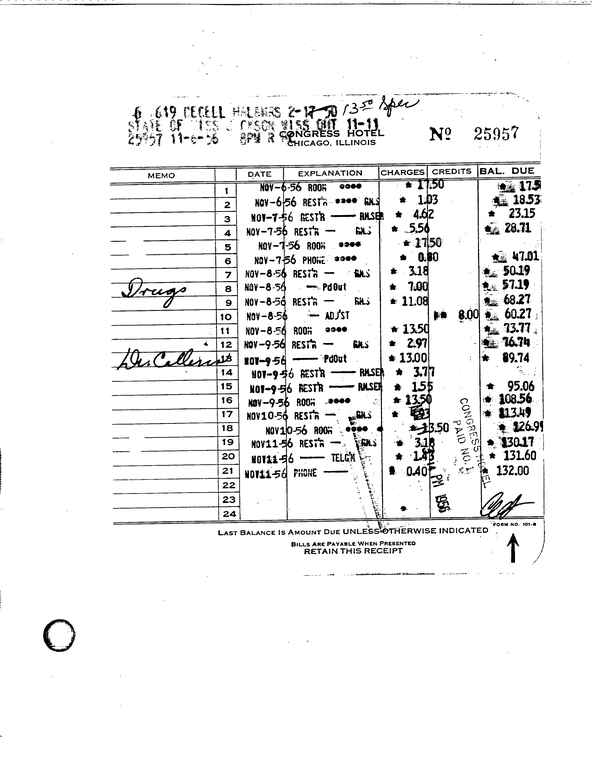 6 619 DECELL HAL 2-17-50 13.50 Spec
STATE OF MISS J CKSON MISS OUT 11-11
25957 11-6-56 8PM R
CONGRESS HOTEL
CHICAGO, ILLINOIS
No 25957
MEMO DATE EXPLANATION CHARGES CREDITS BAL. DUE
1 NOV-6-56 ROOM •••• * 17.50 * 17.5
2 NOV-6-56 REST'R — RMS * 1.03 * 18.53
3 NOV-7-56 REST'R —— RMSER * 4.62 * 23.15
4 NOV-7-56 REST'R — RMS * 5.56 * 28.71
5 NOV-7-56 ROOM •••• * 17.50
6 NOV-7-56 PHONE •••• * 0.80 * 47.01
7 NOV-8-56 REST'R — RMS * 3.18 * 50.19
Drugs 8 NOV-8-56 — PdOut * 7.00 * 57.19
9 NOV-8-56 REST'R — RMS * 11.08 * 68.27
10 NOV-8-56 — ADJ'ST * 8.00 * 60.27
11 NOV-8-56 ROOM •••• * 13.50 * 73.77
12 NOV-9-56 REST'R — RMS * 2.97 * 76.74
13 NOV-9-56 —— PdOut * 13.00 * 89.74
14 NOV-9-56 REST'R —— RMSER * 3.77
15 NOV-9-56 REST'R —— RMSER * 1.55 * 95.06
16 NOV-9-56 ROOM •••• * 13.50 * 108.56
17 NOV10-56 REST'R — RMS * 113.49
18 NOV10-56 ROOM •••• * 13.50 * 126.99
19 NOV11-56 REST'R — RMS * 3.18 * 130.17
20 NOV11-56 —— TELG'M * 1.43 * 131.60
21 NOV11-56 PHONE —— * 0.40 * 132.00
22
23
24
CONGRESS HOTEL
PAID NO. 1
PM 1956
FORM NO. 101-B
LAST BALANCE IS AMOUNT DUE UNLESS OTHERWISE INDICATED
BILLS ARE PAYABLE WHEN PRESENTED
RETAIN THIS RECEIPT